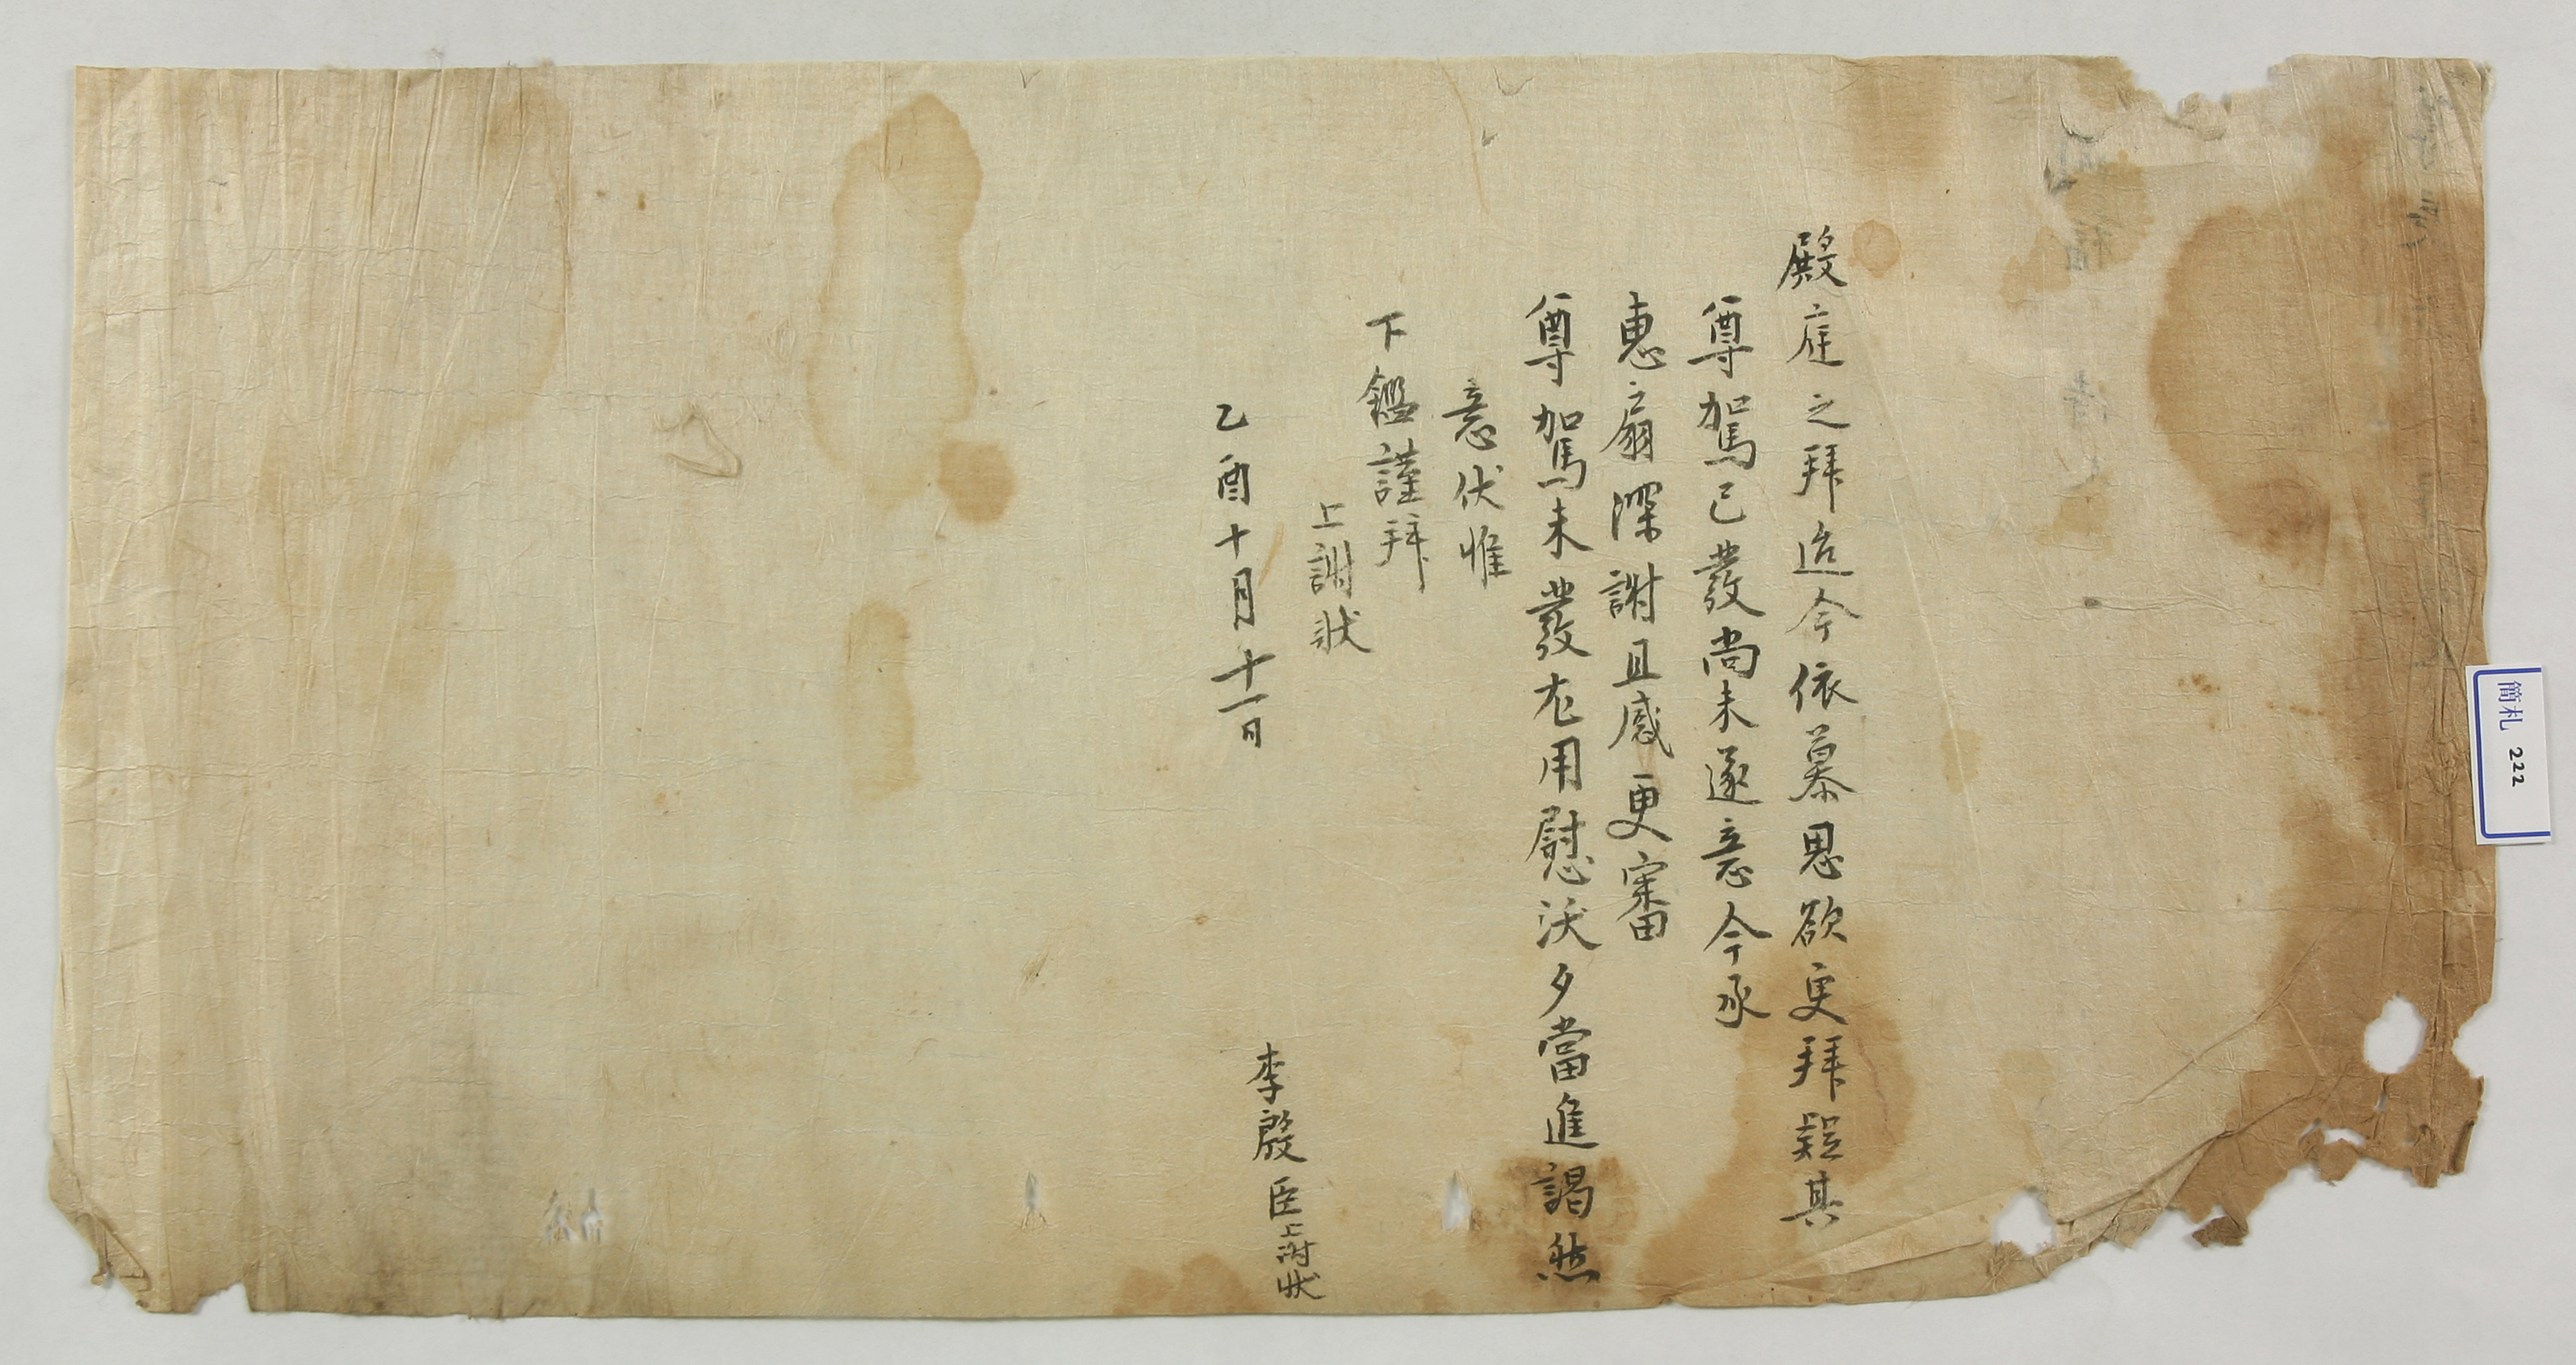 殿庭之拜迨今依慕思欲更拜疑其
尊駕已發尚未遂意今承
惠扇深謝且感更審
尊駕未發尤用慰沃夕當進謁然
意伏惟
下鑑謹拜
上謝狀
乙酉十月十一日
李殷臣上謝狀
簡札 222